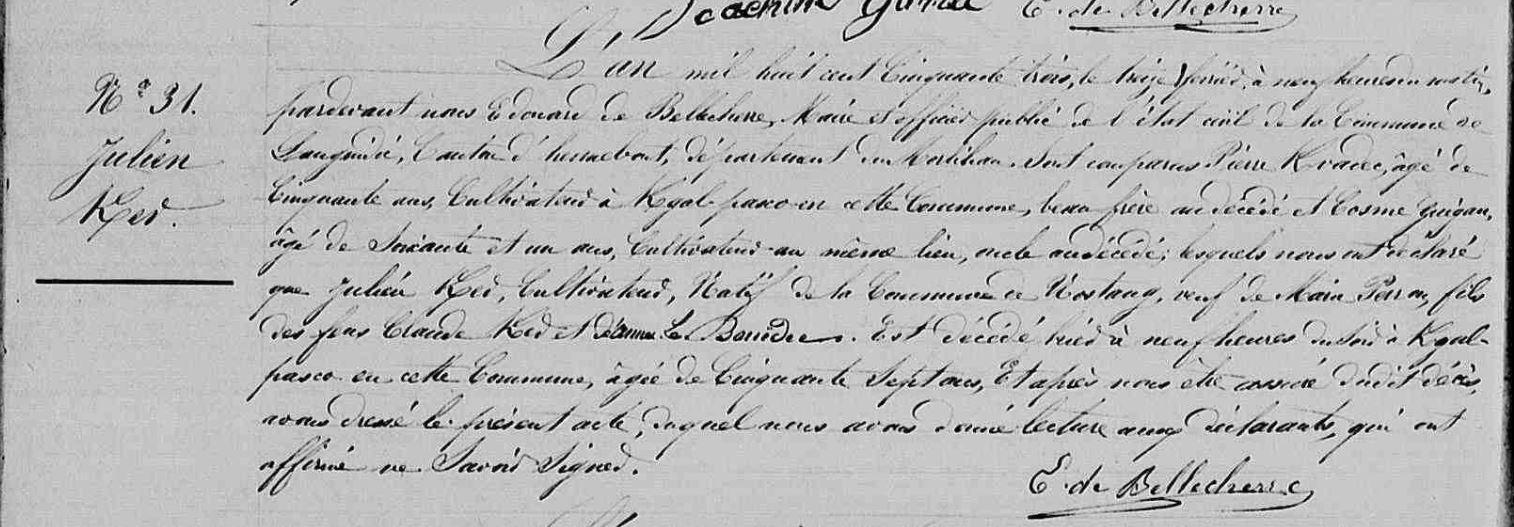 Joachim E. de Bellecherre
L'an mil huit cent Cinquante trois, le treize février, à neuf heures du matin,
N° 31. pardevant nous Edouard de Bellecherre, Maire et officier public de l'état civil de la Commune de
Julien Languidic, Canton d'hennebont, département du Morbihan. Sont comparus Pierre Kvadec, âgé de
Ker. Cinquante ans, Cultivateur à Kgal-pasco en cette Commune, beau frère au décédé et Cosme Guigan,
âgé de Soixante et un ans, Cultivateur au même lieu, oncle au décédé; lesquels nous ont déclaré
que Julien Ker, Cultivateur, Natif de la Commune de Nostang, veuf de Marie Perron, fils
des feus Claude Ker et d'anne Le Bouëdec. Est décédé hier à neuf heures du soir à Kgal-
pasco en cette Commune, âgée de Cinquante Sept ans, Et après nous être assuré dudit décès,
avons dressé le présent acte, duquel nous avons donné lecture aux déclarants, qui ont
affirmé ne Savoir Signer.
E. de Bellecherre